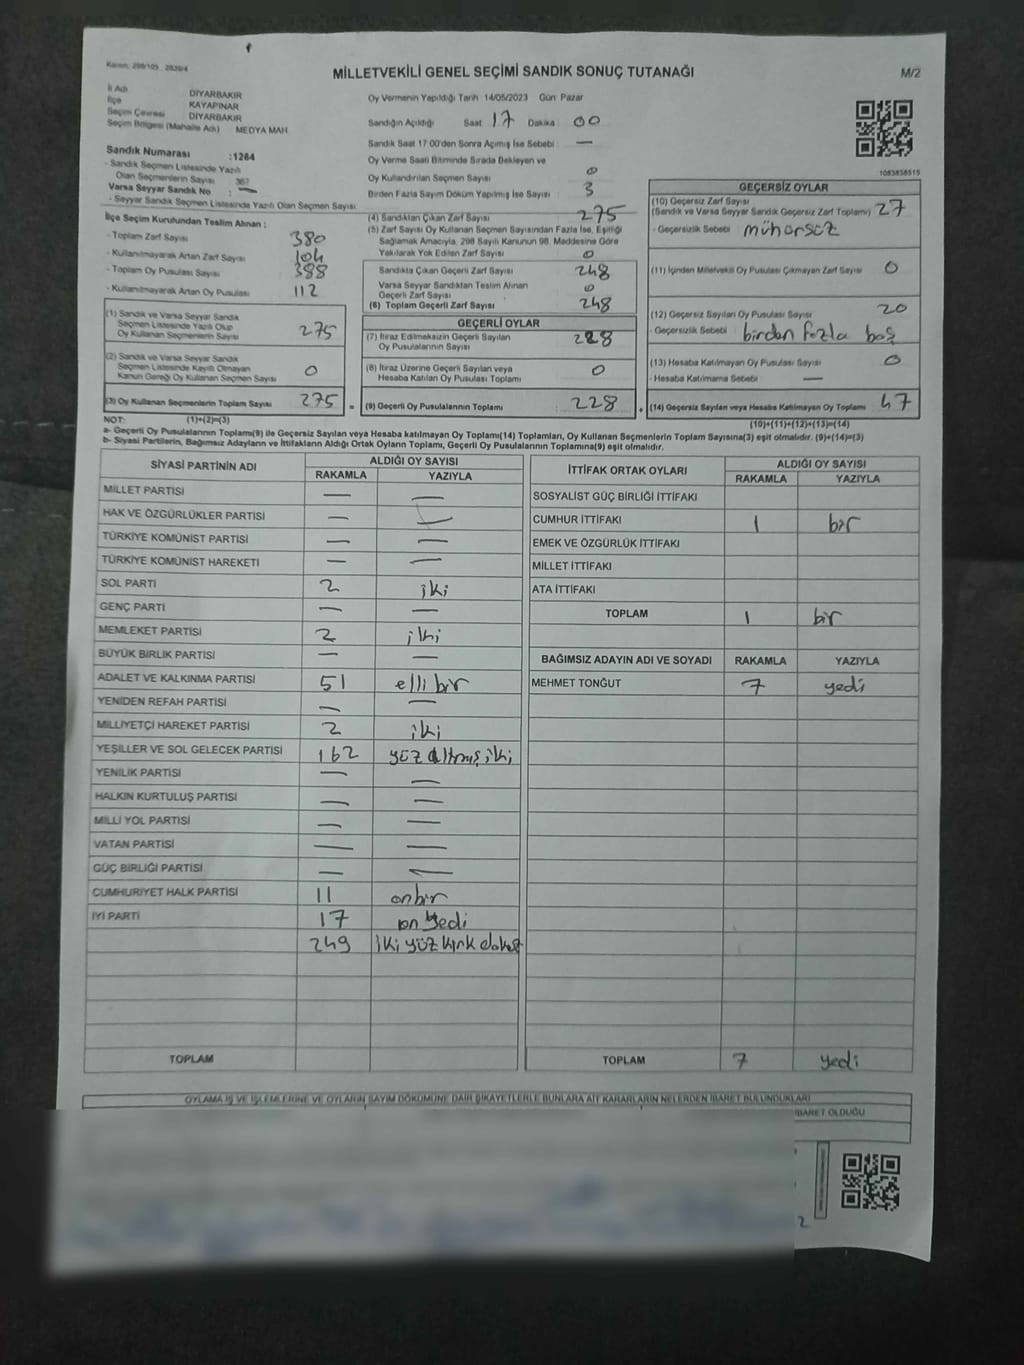 Kanun: 298/105 , 2839/4
MİLLETVEKİLİ GENEL SEÇİMİ SANDIK SONUÇ TUTANAĞI
M/2
İl Adı DİYARBAKIR
İlçe KAYAPINAR
Seçim Çevresi DİYARBAKIR
Seçim Bölgesi (Mahalle Adı) MEDYA MAH.
Oy Vermenin Yapıldığı Tarih 14/05/2023 Gün: Pazar
Sandığın Açıldığı Saat 17 Dakika 00
Sandık Saat 17:00'den Sonra Açımış İse Sebebi : —
Oy Verme Saati Bitiminde Sırada Bekleyen ve
Oy Kullandırılan Seçmen Sayısı 0
Birden Fazla Sayım Döküm Yapılmış İse Sayısı : 3
1083838515
Sandık Numarası :1264
- Sandık Seçmen Listesinde Yazılı
Olan Seçmenlerin Sayısı : 367
Varsa Seyyar Sandık No : —
- Seyyar Sandık Seçmen Listesinde Yazılı Olan Seçmen Sayısı:
İlçe Seçim Kurulundan Teslim Alınan :
- Toplam Zarf Sayısı 380
- Kullanılmayarak Artan Zarf Sayısı 104
- Toplam Oy Pusulası Sayısı 388
- Kullanılmayarak Artan Oy Pusulası 112
(1) Sandık ve Varsa Seyyar Sandık
Seçmen Listesinde Yazılı Olup
Oy Kullanan Seçmenlerin Sayısı 275
(2) Sandık ve Varsa Seyyar Sandık
Seçmen Listesinde Kayıtlı Olmayan
Kanun Gereği Oy Kullanan Seçmen Sayısı 0
(3) Oy Kullanan Seçmenlerin Toplam Sayısı 275 =
(4) Sandıktan Çıkan Zarf Sayısı 275
(5) Zarf Sayısı Oy Kullanan Seçmen Sayısından Fazla İse, Eşitliği
Sağlamak Amacıyla; 298 Sayılı Kanunun 98. Maddesine Göre
Yakılarak Yok Edilen Zarf Sayısı 0
Sandıkta Çıkan Geçerli Zarf Sayısı 248
Varsa Seyyar Sandıktan Teslim Alınan
Geçerli Zarf Sayısı 0
(6) Toplam Geçerli Zarf Sayısı 248
GEÇERLİ OYLAR
(7) İtiraz Edilmeksizin Geçerli Sayılan
Oy Pusulalarının Sayısı 228
(8) İtiraz Üzerine Geçerli Sayılan veya
Hesaba Katılan Oy Pusulası Toplamı 0
(9) Geçerli Oy Pusulalarının Toplamı 228
GEÇERSİZ OYLAR
(10) Geçersiz Zarf Sayısı
(Sandık ve Varsa Seyyar Sandık Geçersiz Zarf Toplamı) 27
- Geçersizlik Sebebi : mühürsüz
(11) İçinden Milletvekili Oy Pusulası Çıkmayan Zarf Sayısı 0
(12) Geçersiz Sayılan Oy Pusulası Sayısı 20
- Geçersizlik Sebebi : birden fazla baş
(13) Hesaba Katılmayan Oy Pusulası Sayısı 0
- Hesaba Katılmama Sebebi : —
(14) Geçersiz Sayılan veya Hesaba Katılmayan Oy Toplamı 47
NOT: (1)+(2)=(3)
(10)+(11)+(12)+(13)=(14)
a- Geçerli Oy Pusulasının Toplamı(9) ile Geçersiz Sayılan veya Hesaba katılmayan Oy Toplamı(14) Toplamları, Oy Kullanan Seçmenlerin Toplam Sayısına(3) eşit olmalıdır. (9)+(14)=(3)
b- Siyasi Partilerin, Bağımsız Adayların ve İttifakların Aldığı Ortak Oyların Toplamı, Geçerli Oy Pusulalarının Toplamına(9) eşit olmalıdır.
SİYASİ PARTİNİN ADI ALDIĞI OY SAYISI
RAKAMLA YAZIYLA
MİLLET PARTİSİ — —
HAK VE ÖZGÜRLÜKLER PARTİSİ — —
TÜRKİYE KOMÜNİST PARTİSİ — —
TÜRKİYE KOMÜNİST HAREKETİ — —
SOL PARTİ 2 iki
GENÇ PARTİ — —
MEMLEKET PARTİSİ 2 iki
BÜYÜK BİRLİK PARTİSİ — —
ADALET VE KALKINMA PARTİSİ 51 elli bir
YENİDEN REFAH PARTİSİ — —
MİLLİYETÇİ HAREKET PARTİSİ 2 iki
YEŞİLLER VE SOL GELECEK PARTİSİ 162 yüz altmış iki
YENİLİK PARTİSİ — —
HALKIN KURTULUŞ PARTİSİ — —
MİLLİ YOL PARTİSİ — —
VATAN PARTİSİ — —
GÜÇ BİRLİĞİ PARTİSİ — —
CUMHURİYET HALK PARTİSİ 11 onbir
İYİ PARTİ 17 on yedi
249 iki yüz kırk dokuz
TOPLAM
İTTİFAK ORTAK OYLARI ALDIĞI OY SAYISI
RAKAMLA YAZIYLA
SOSYALİST GÜÇ BİRLİĞİ İTTİFAKI
CUMHUR İTTİFAKI 1 bir
EMEK VE ÖZGÜRLÜK İTTİFAKI
MİLLET İTTİFAKI
ATA İTTİFAKI
TOPLAM 1 bir
BAĞIMSIZ ADAYIN ADI VE SOYADI RAKAMLA YAZIYLA
MEHMET TONĞUT 7 yedi
TOPLAM 7 yedi
OYLAMA İŞ VE İŞLEMLERİNE VE OYLARIN SAYIM DÖKÜMÜNE DAİR ŞİKAYETLERLE BUNLARA AİT KARARLARIN NELERDEN İBARET BULUNDUKLARI
İBARET OLDUĞU
2